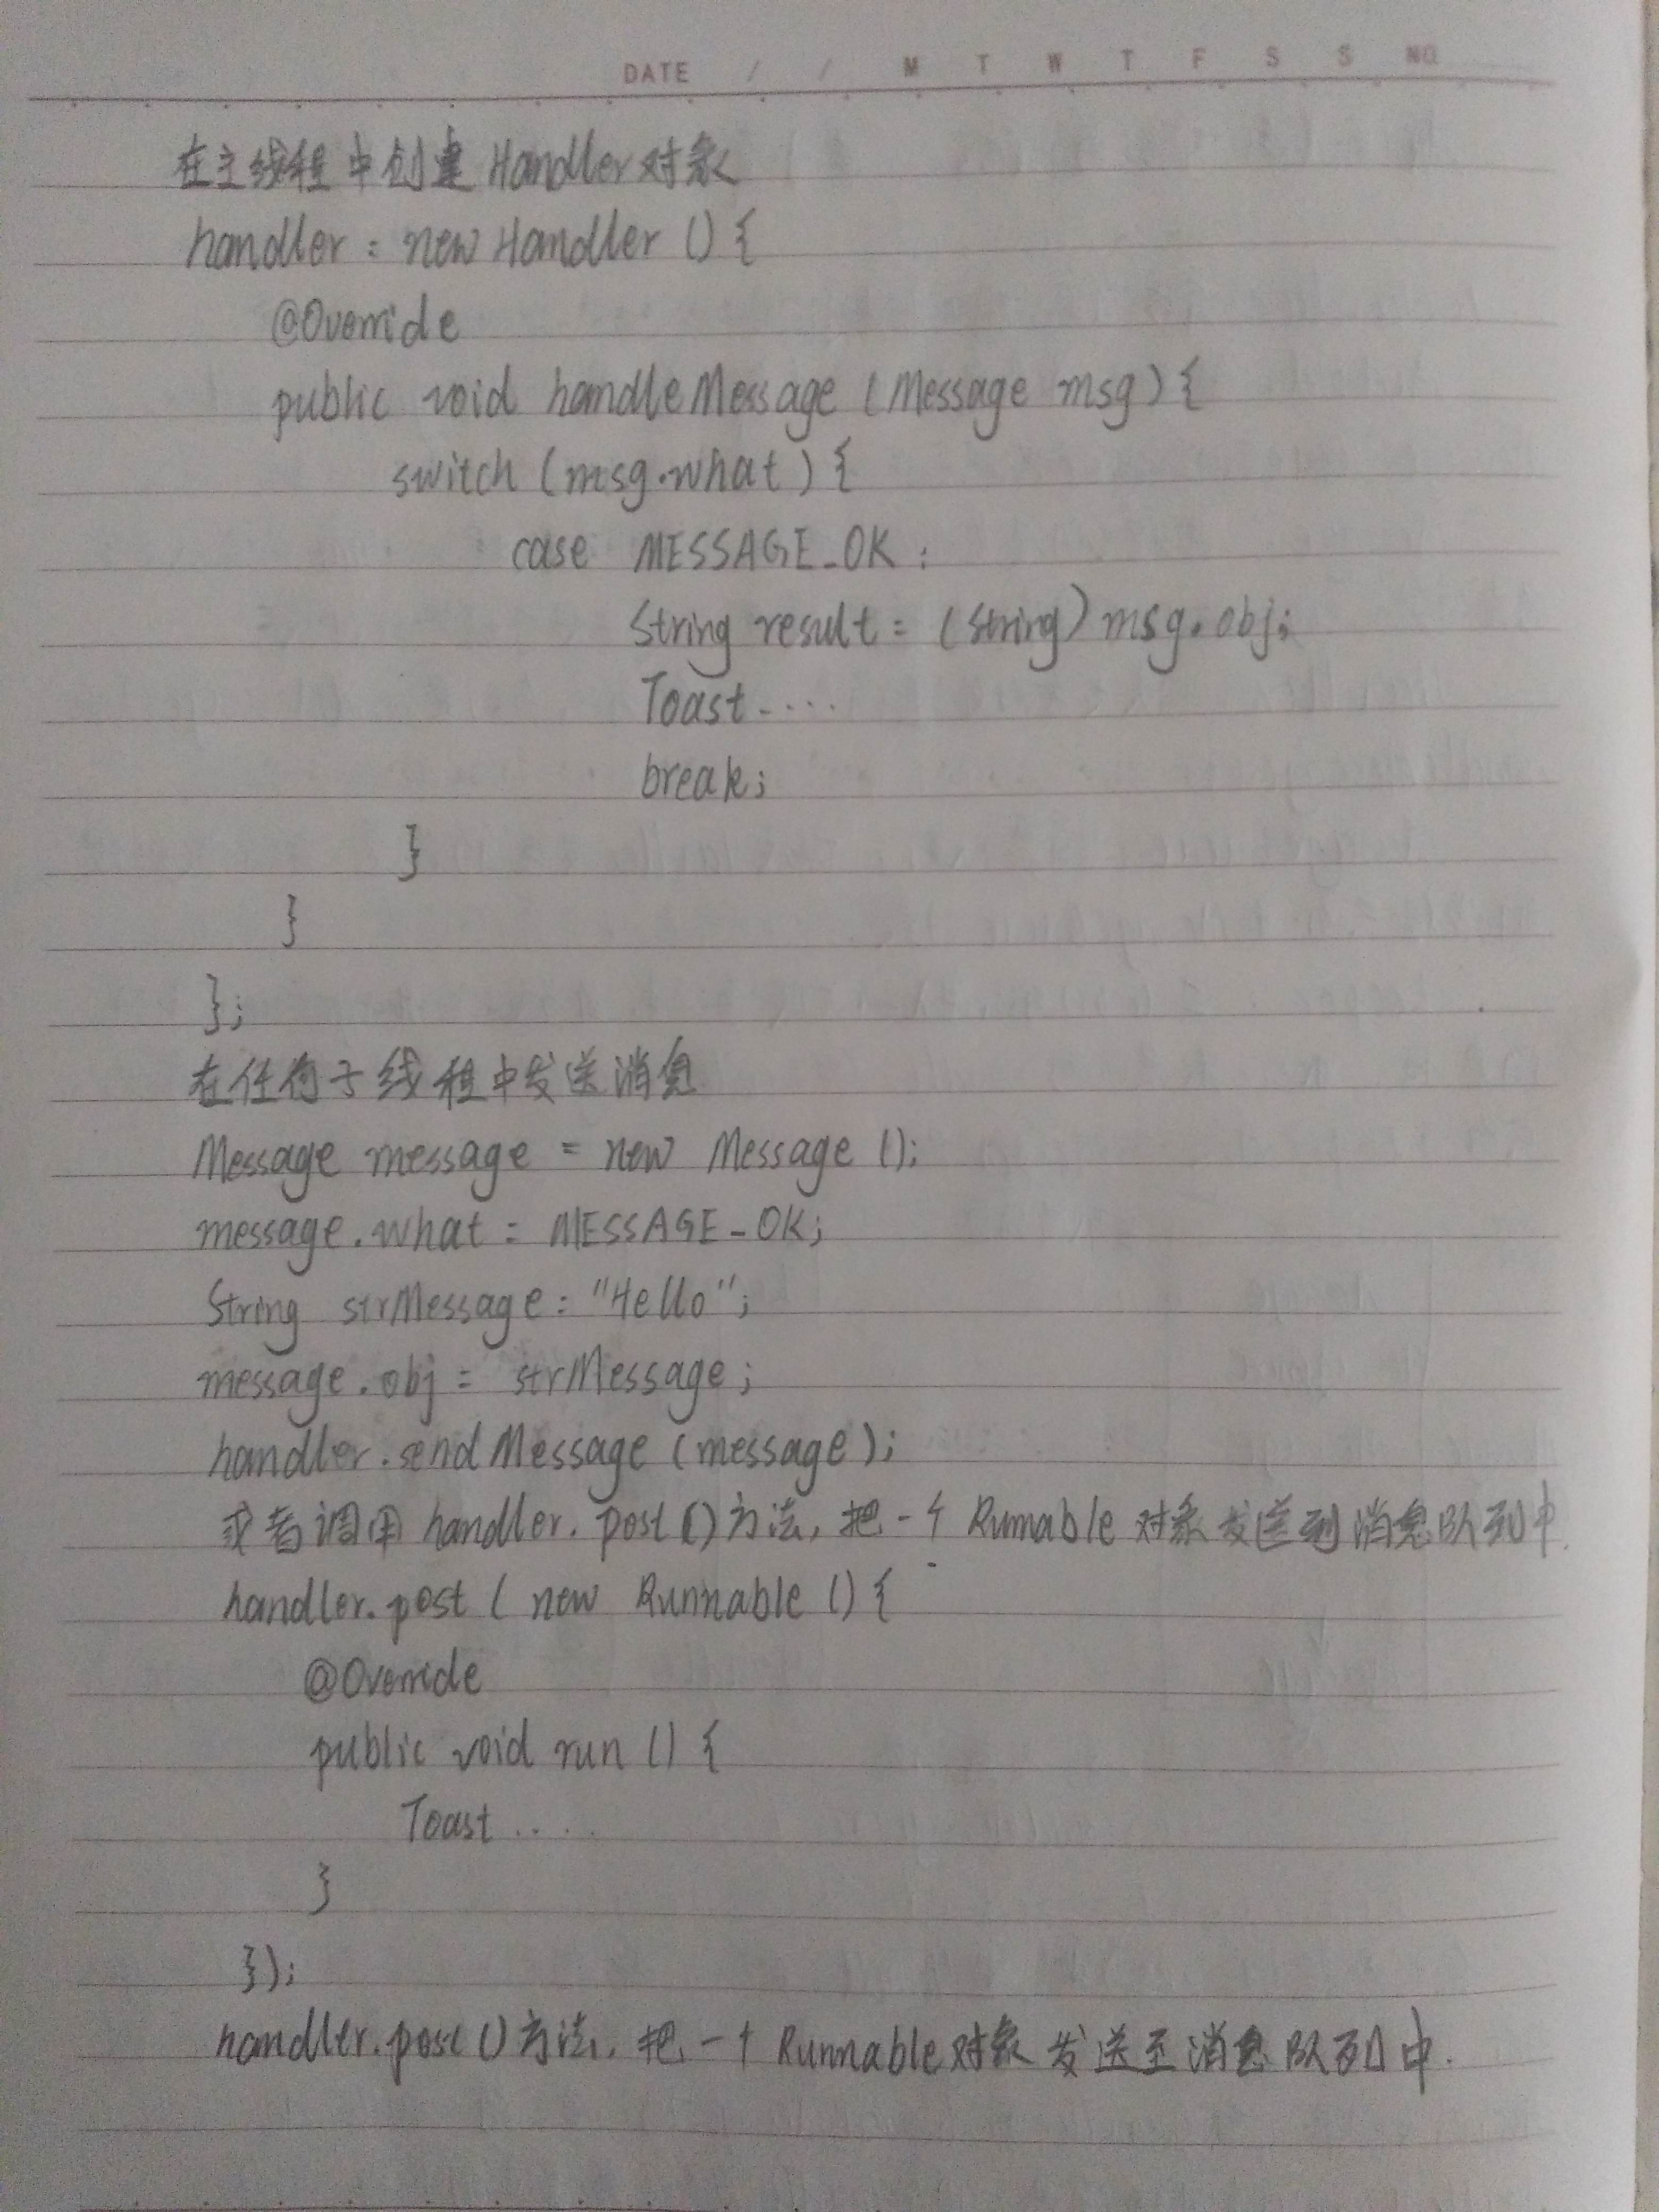 DATE / / M T W T F S S NO.
在主线程中创建Handler对象
handler = new Handler () {
@Override
public void handleMessage (Message msg) {
switch (msg.what) {
case MESSAGE_OK :
String result = (String) msg.obj;
Toast....
break;
}
}
};
在任何子线程中发送消息
Message message = new Message ();
message.what = MESSAGE_OK;
String strMessage = "Hello";
message.obj = strMessage;
handler.sendMessage (message);
或者调用 handler. post () 方法, 把一个 Runnable 对象发送到消息队列中.
handler.post ( new Runnable () {
@Override
public void run () {
Toast ....
}
});
handler.post () 方法, 把一个 Runnable 对象发送至消息队列中.